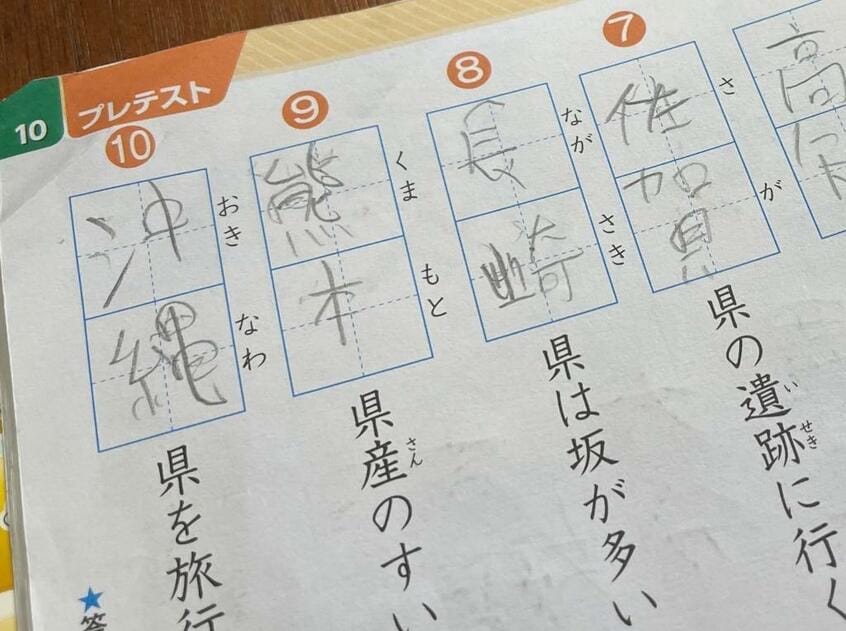 10
プレテスト
高
⑦
さ
が
佐賀
県の遺跡に行く
い
せき
⑧
なが
さき
長崎
県は坂が多い
⑨
くま
もと
熊本
県産のすい
さん
⑩
おき
なわ
沖縄
県を旅行
★答